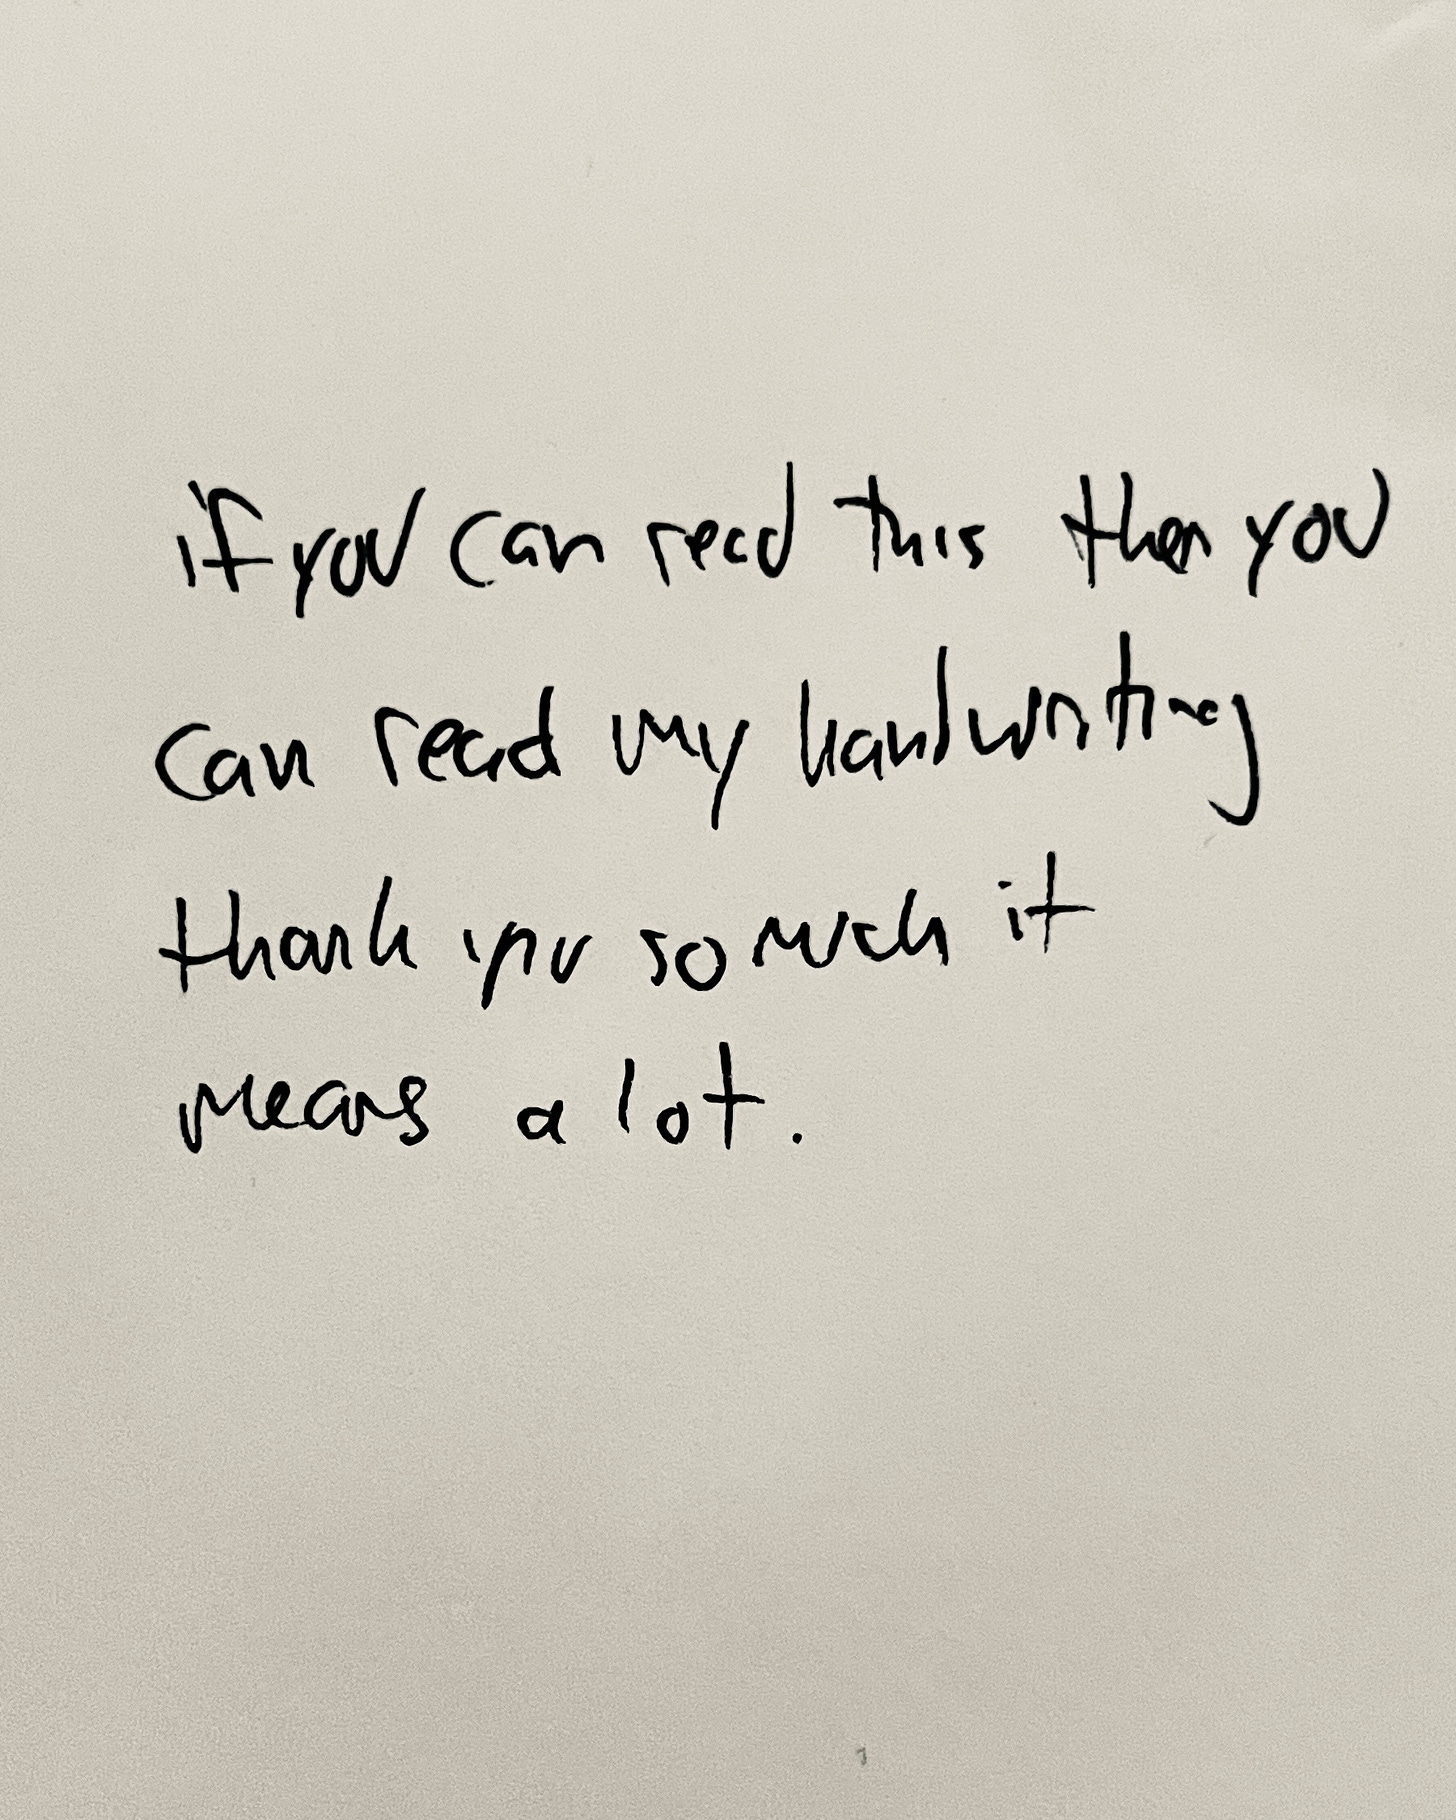 if you can read this then you
can read my handwriting
thank you so much it
means a lot.